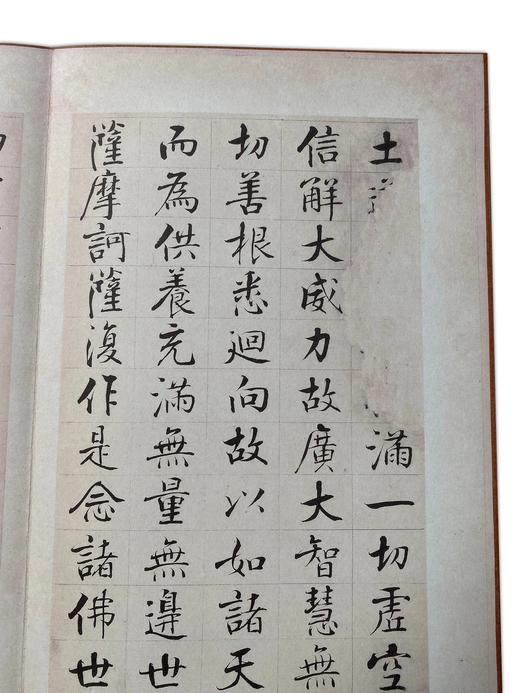 土滿一切虛空
信解大威力故廣大智慧無
切善根悉迴向故以如諸天
而為供養充滿無量無邊世
薩摩訶薩復作是念諸佛世